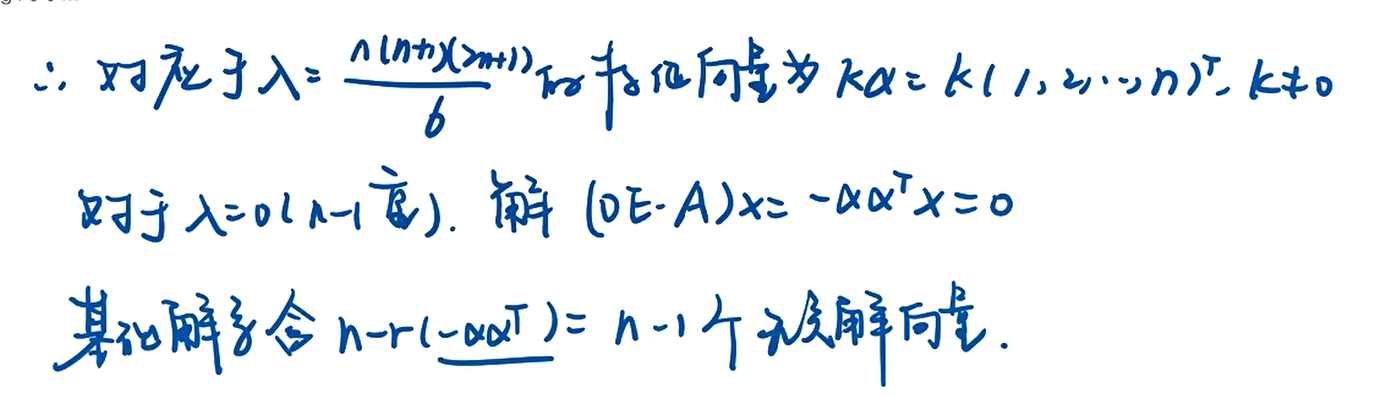 ∴ 对应于 λ = n(n+1)(2n+1)/6 的特征向量为 kα = k(1,2,…,n)ᵀ, k≠0
对于 λ=0(n-1重). 解 (0E-A)x = -ααᵀx = 0
基础解系含 n-r(-ααᵀ) = n-1个无关解向量.